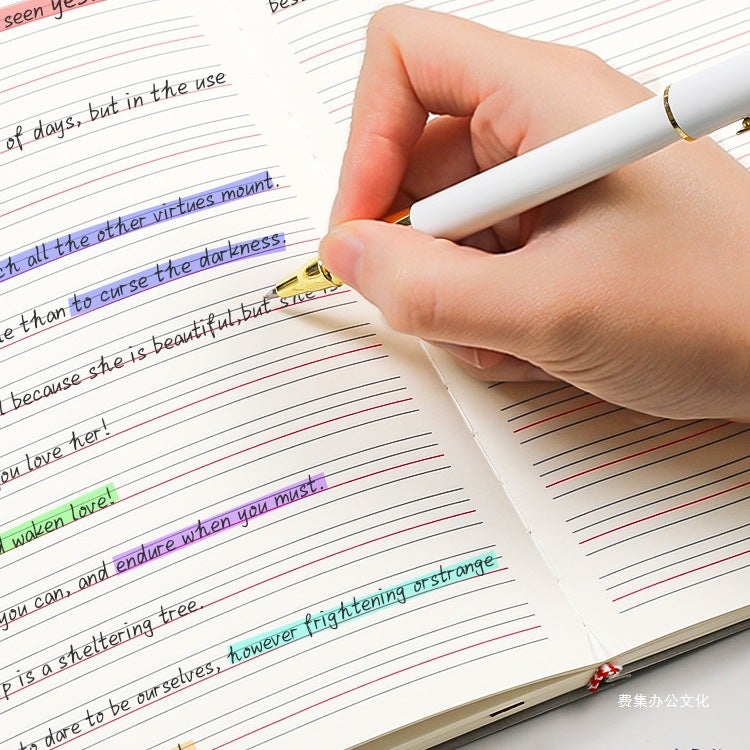 seen yes.
of days, but in the use
ch all the other virtues mount.
than to curse the darkness.
because she is beautiful,but she is
you love her!
waken love!
you can, and endure when you must.
p is a sheltering tree.
to dare to be ourselves, however frightening orstrange
best
费集办公文化